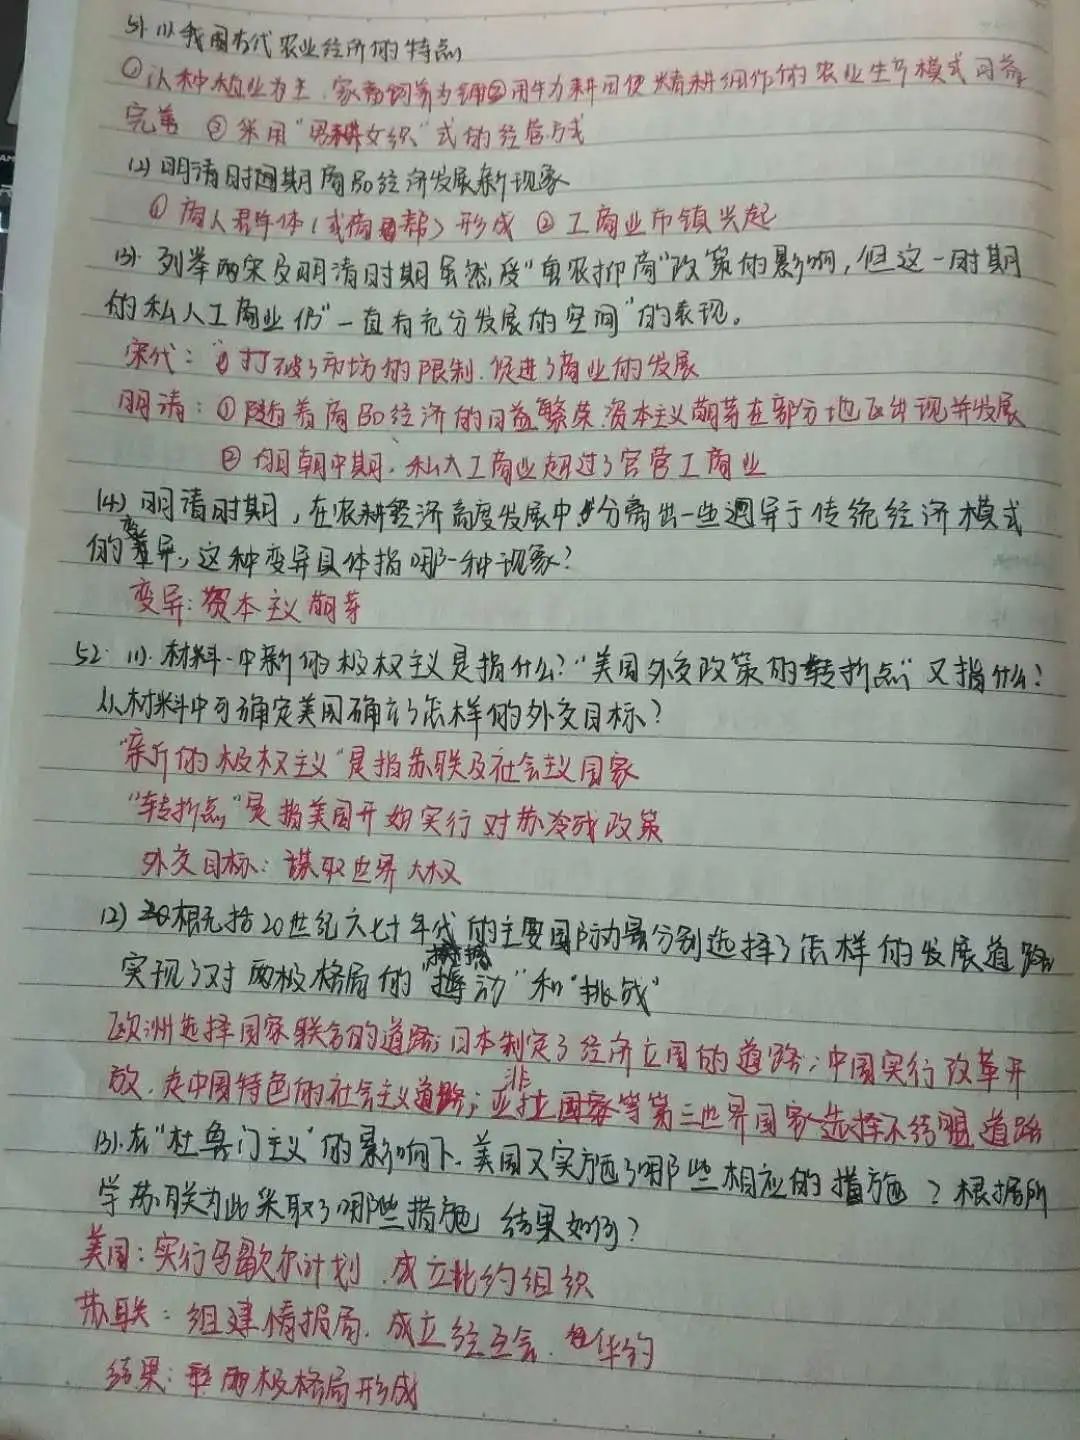 51. (1) 我国古代农业经济的特点
①以种植业为主,家畜饲养为辅②用牛力耕田使精耕细作的农业生产模式日益
完善 ③采用“男耕女织”式的经营方式
(2) 明清时期商品经济发展新现象
① 商人群体(或商帮)形成 ② 工商业市镇兴起
(3). 列举两宋及明清时期虽然受“重农抑商”政策的影响,但这一时期
的私人工商业仍“一直有充分发展的空间”的表现。
宋代: 打破了市坊的限制,促进了商业的发展
明清: ① 随着商品经济的日益繁荣,资本主义萌芽在部分地区出现并发展
② 明朝中期,私人工商业超过了官营工商业
(4) 明清时期,在农耕经济高度发展中,分离出一些迥异于传统经济模式
的变异,这种变异具体指哪一种现象?
变异: 资本主义萌芽
52. (1). 材料一中新的极权主义是指什么?“美国外交政策的转折点”又指什么?
从材料中可确定美国确立了怎样的外交目标?
“新的极权主义”是指苏联及社会主义国家
“转折点”是指美国开始实行对苏冷战政策
外交目标: 谋取世界大权
(2) 概括20世纪六七十年代的主要国际力量分别选择了怎样的发展道路
实现了对两极格局的“ 动”和“挑战”
欧洲选择国家联合的道路;日本制定了经济立国的道路;中国实行改革开
放,走中国特色的社会主义道路;亚非拉国家等第三世界国家选择不结盟道路
(3). 在“杜鲁门主义”的影响下,美国又实施了哪些相应的措施?根据所
学苏联为此采取了哪些措施 结果如何?
美国: 实行马歇尔计划,成立北约组织
苏联: 组建情报局,成立经互会,华约
结果: 两极格局形成